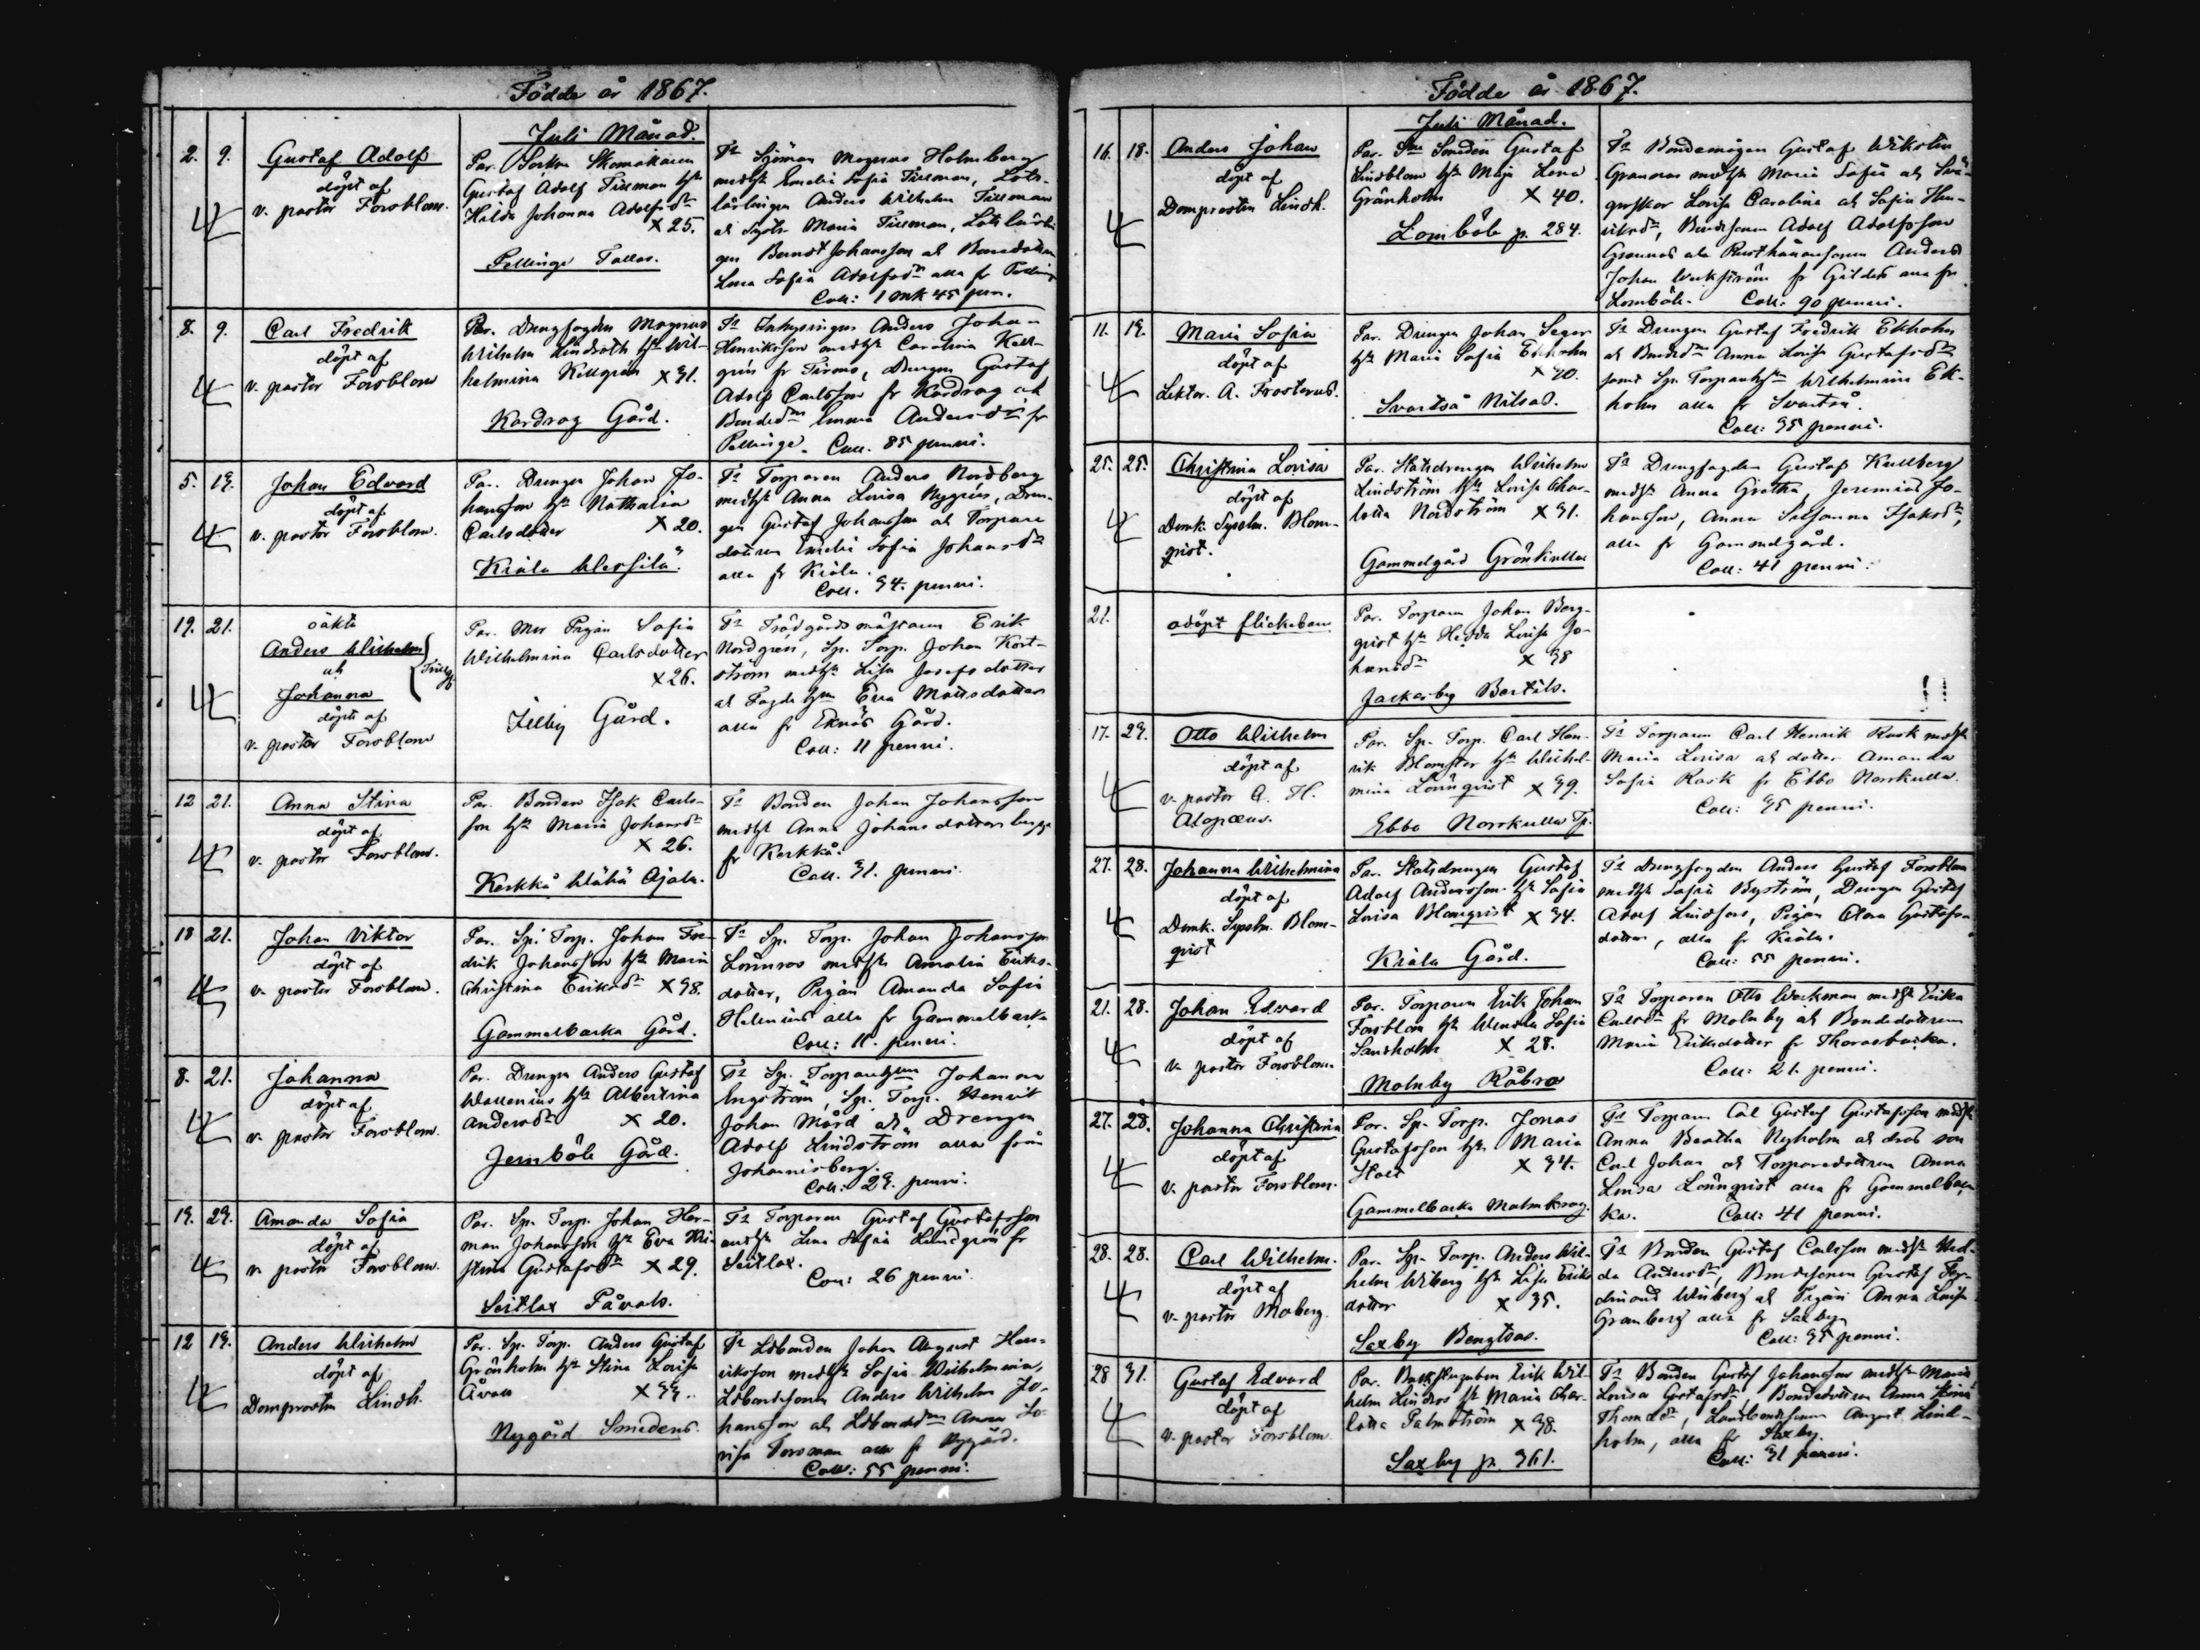 Födde år 1867.
Juli Månad.
2. 9. Gustaf Adolf
döpt af
v. pastor Forsblom.
Par. Sockn Skomakaren
Gustaf Adolf Tillman hst
Hilda Johanna Adolfsdr
x 25.
Pellinge Tallas.
Fr Sjöman Magnus Holmberg
medhst Emelie Sofia Tillman, Lots-
lärlingen Anders Wilhelm Tillman
ch Maria Tillman, Lotslärlin-
gen Berndt Johansson ch Bondedottern
Lena Sofia Adolfsdr alla fr Pellinge
Coll: 1 mk 45 pen.
8. 9. Carl Fredrik
döpt af
v. pastor Forsblom
Par. Drengfogden Magnus
Wilhelm Lindroth hst Wil-
helmina Kellgren x 31.
Kardrag Gård.
Fr Inhysingen Anders Johan
Henriksson medhst Carolina Kell-
gren fr Tirmo, Drengen Gustaf
Adolf Carlsson fr Kardrag och
Bondedr Emma Andersdr fr
Pellinge. Coll. 85 penni.
5. 14. Johan Edvard
döpt af
v. pastor Forsblom.
Par. Drengen Johan Jo-
hansson hst Nathalia
Carlsdotter x 20.
Kiala
Fr Torparen Anders Nordberg
medhst Anna Lovisa Nygren, Dren-
gen Gustaf Johansson ch Torpare
dottern Emelie Sofia Johansdr
alla fr Kiala.
Coll. 34. penni.
19. 21. oäkta
Anders Wilhelm
ch
Johanna
döpte af
v. pastor Forsblom
Par. Mor Pigan Sofia
Wilhelmina Carlsdotter
x 26.
Gård.
Fr Trädgårdsmästaren Erik
Nordgren, Sp. Torp. Johan Kort-
ström medhst Lisa Josefsdotter
ch Eva Mattsdotter
alla fr Eknäs Gård.
Coll: 11 penni.
12 21. Anna Stina
döpt af
v. pastor Forsblom.
Par. Bonden Isak Carls-
son hst Maria Johansdr
x 26.
Kerkkå Ajala.
Fr Bonden Johan Johansson
medhst Anna Johansdotter begge
fr Kerkkå.
Coll. 31. penni.
18 21. Johan Viktor
döpt af
v. pastor Forsblom.
Par. Sp. Torp. Johan Fre-
drik Johansson hst Maria
Christina Eriksdr x 38.
Gammelbacka Gård.
Fr Sp. Torp. Johan Johansson
Lönnroos medhst Amalia Eriks-
dotter, Pigan Amanda Sofia
Helenius alla fr Gammelbacka
Coll: 11. penni.
8. 21. Johanna
döpt af
v. pastor Forsblom.
Par. Drengen Anders Gustaf
Wallenius hst Albertina
Andersdr x 20.
Jernböle Gård.
Fr Sp. Johanna
Engström, Sp. Torp. Henrik
Johan Mård ch Drengen
Adolf Lindström alla från
Johannisberg.
Coll: 24. penni.
14. 24. Amanda Sofia
döpt af
v. pastor Forsblom.
Par. Sp. Torp. Johan Her-
man Johansson hst Eva Kri-
stina Gustafsdr x 29.
Seitlax Påvals.
Fr Torparen Gustaf Gustafsson
medhst Lena Sofia Lindgren fr
Seitlax.
Coll: 26 penni.
12 14. Anders Wilhelm
döpt af
Domprosten Lindh.
Par. Sp. Torp. Anders Gustaf
Grönholm hst Stina Lovisa
x 44.
Nygård Smedens.
Fr Ldbonden Johan August Hen-
riksson medhst Sofia Wilhelmina,
Ldbondesonen Anders Wilhelm Jo-
hansson ch Anna Lo-
visa Forsman alla fr Nygård.
Coll: 55 penni.
Födde år 1867.
Juli Månad.
16. 18. Anders Johan
döpt af
Domprosten Lindh.
Par. Smeden Gustaf
Lindblom hst Maja Lena
Gränholm x 40.
Lomböle p. 284.
Fr Bondemågen Gustaf Wikholm
Grannas medhst Maria Sofia ch Svä-
gerskor Lovisa Carolina ch Sofia Hen-
riksdr, Bondesonen Adolf Adolfsson
Grannas ch Rusthållaresonen Anders
Johan Weckström fr Gäddrag alla fr
Lomböle. Coll. 90 penni.
11. 14. Maria Sofia
döpt af
Lektor. A. Frosterus.
Par. Drengen Johan Seger
hst Maria Sofia Ekholm
x 40.
Svartså Nilsas.
Fr Drengen Gustaf Fredrik Ekholm
ch Bondedr Anna Lovisa Gustafsdr
samt Sp. Wilhelmina Ek-
holm alla fr Svartså.
Coll: 35 penni.
25. 25. Christina Lovisa
döpt af
Domk. Syssln. Blom-
qvist.
Par. Statdrengen Wilhelm
Lindström hst Lovisa Char-
lotta Nordström x 31.
Gammelgård Grönkulla
Fr Drengfogden Gustaf Kullberg
medhst Anna Gretha, Jeremias Jo-
hansson, Anna Susanna Isaksdr,
alla fr Gammelgård.
Coll: 41 penni.
21. odöpt flickebarn
Par. Torparen Johan Berg-
qvist hst Hedda Lovisa Jo-
hansdr x 38
Jackarby Bertils.
17. 24. Otto Wilhelm
döpt af
v. pastor A. H.
Alopæus.
Par. Sp. Torp. Carl Hen-
rik Blomster hst Wilhel-
mina Lönnqvist x 39.
Ebbo Norrkulla Tp.
Fr Torparen Carl Henrik Rask medhst
Maria Lovisa ch dotter Amanda
Sofia Rask fr Ebbo Norrkulla.
Coll: 45 penni.
27. 28. Johanna Wilhelmina
döpt af
Domk. Syssln. Blom-
qvist
Par. Statsdrengen Gustaf
Adolf Andersson hst Sofia
Lovisa Blomqvist x 34.
Kiala Gård.
Fr Drengfogden Anders Gustaf Forsblom
medhst Sofia Byström, Drengen Gustaf
Adolf Lindfors, Pigan Clara Gustafs-
dotter, alla fr Kiala.
Coll: 55 penni.
21. 28. Johan Edvard
döpt af
v. pastor Forsblom.
Par. Torparen Erik Johan
Forsblom hst Wendla Sofia
Sandholm x 28.
Molnby Råbro
Fr Torparen Otto Weckman medhst Erika
Carlsdr fr Molnby ch Bondedottern
Maria Eriksdotter fr Thorasbacka.
Coll: 21. penni.
27. 28. Johanna Christina
döpt af
v. pastor Forsblom.
Par. Sp. Torp. Jonas
Gustafsson hst Maria
x 34.
Gammelbacka Malmkrog.
Fr Torparen Carl Gustaf Gustafsson medhst
Anna Beatha Nyholm ch dess son
Carl Johan ch Torparedottern Anna
Lovisa Lönnqvist alla fr Gammelbac-
ka. Coll: 41 penni.
28. 28. Carl Wilhelm.
döpt af
v. pastor Moberg.
Par. Sp. Torp. Anders Wil-
helm Wiberg hst Lisa Eriks
dotter x 35.
Saxby Bengtsas.
Fr Bonden Gustaf Carlsson medhst Hed-
da Andersdr, Bondesonen Gustaf Fer-
dinand Winberg ch Pigan Anna Lovisa
Granberg alla fr Saxby.
Coll: 35 penni.
28 31. Gustaf Edvard
döpt af
v. pastor Forsblom.
Par. Erik Wil-
helm Lindros hst Maria Char-
lotta Palmström x 38.
Saxby p. 361.
Fr Bonden Gustaf Johansson medhst Maria
Lovisa Gustafsdr, Bondedottern Anna Stina
Thomasdr, Landbondesonen August Lind-
holm, alla fr Saxby.
Coll: 31 penni.